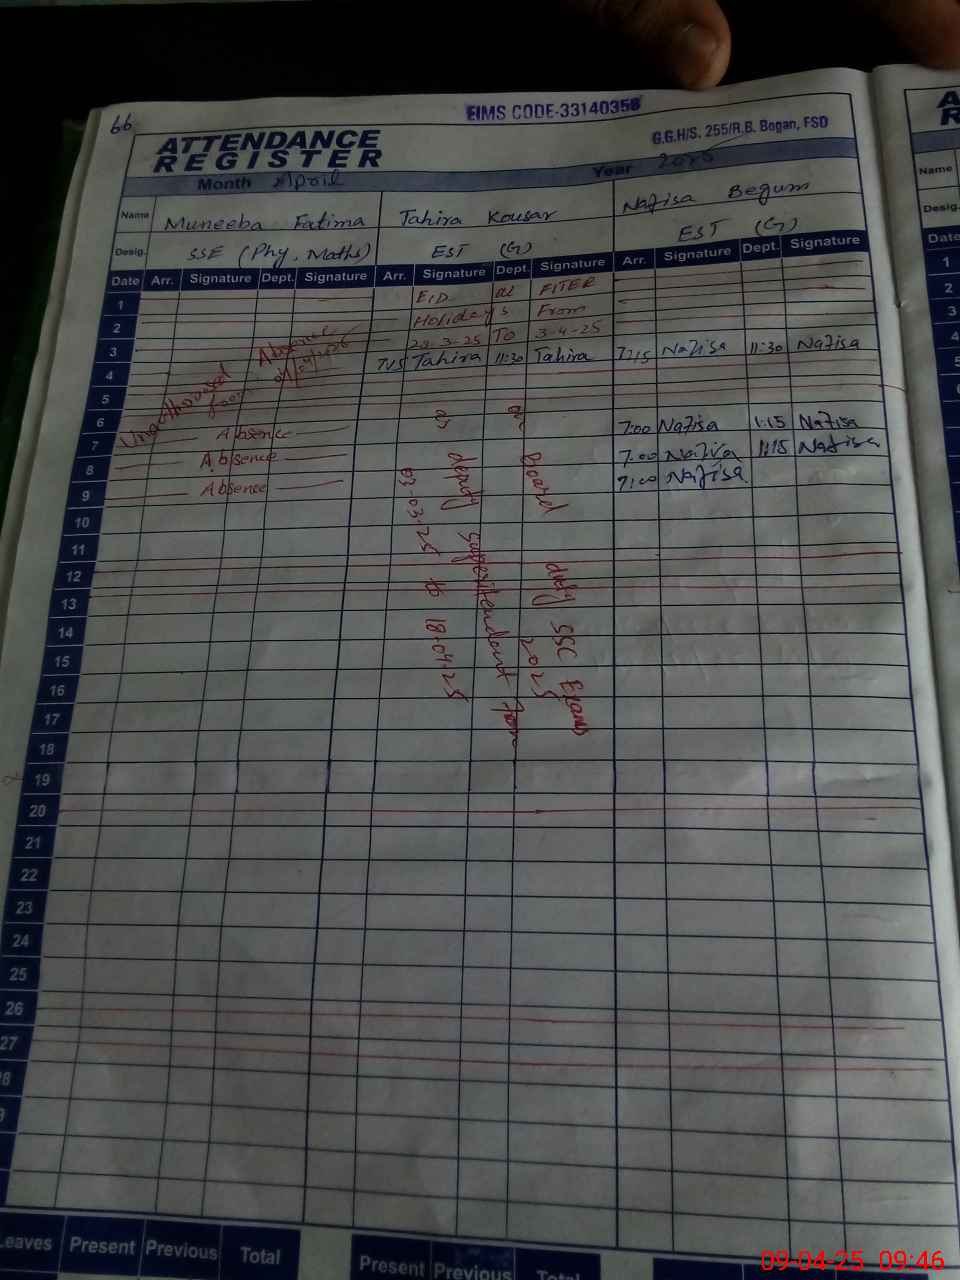 66
EIMS CODE-33140358
ATTENDANCE
REGISTER
G.G.H/S. 255/R.B. Bogan, FSD
Month April Year 2025
Name Muneeba Fatima Tahira Kousar Nafisa Begum
Desig. SSE (Phy, Maths) EST (G) EST (G)
Date Arr. Signature Dept. Signature Arr. Signature Dept. Signature Arr. Signature Dept. Signature
1 EID ul FITER
2 Holidays From
3 To 3-4-25
4 Tahira 11:30 Tahira 7:15 Nafisa 11:30 Nafisa
Absence
from
5
6
7 Absence 7:00 Nafisa 1:15 Nafisa
8 Absence 7:00 Nafisa 1:15 Nafisa
9 Absence 7:00 Nafisa
on Board duty SSC Exams
2025
as deputy superitendent from
03-03-25 to 18-04-25
10
11
12
13
14
15
16
17
18
19
20
21
22
23
24
25
26
27
Leaves Present Previous Total Present Previous Total
Name
Desig.
Date
1
2
3
4
5
09-04-25 09:46